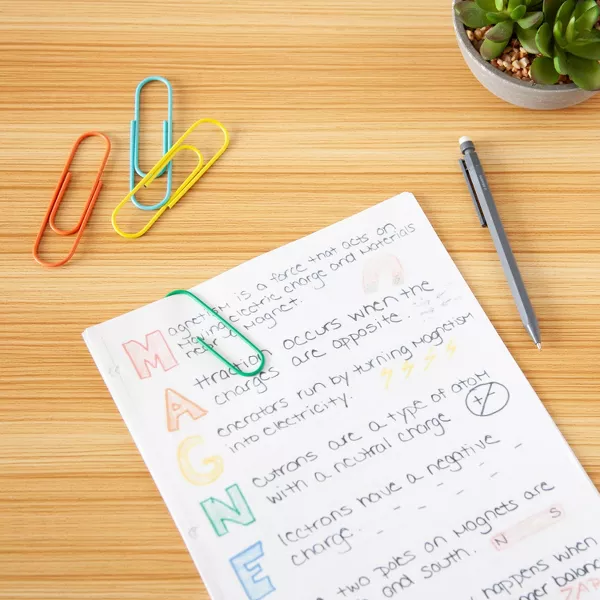 Magnetism is a force that acts on
Moving electric charge and Materials
near a Magnet.
Attraction occurs when the
charges are opposite.
Generators run by turning Magnetism
into electricity.
Neutrons are a type of atom
with a neutral charge
Electrons have a negative
charge.
two poles on Magnets are
and south. N S
happens when
balanc
ZAP